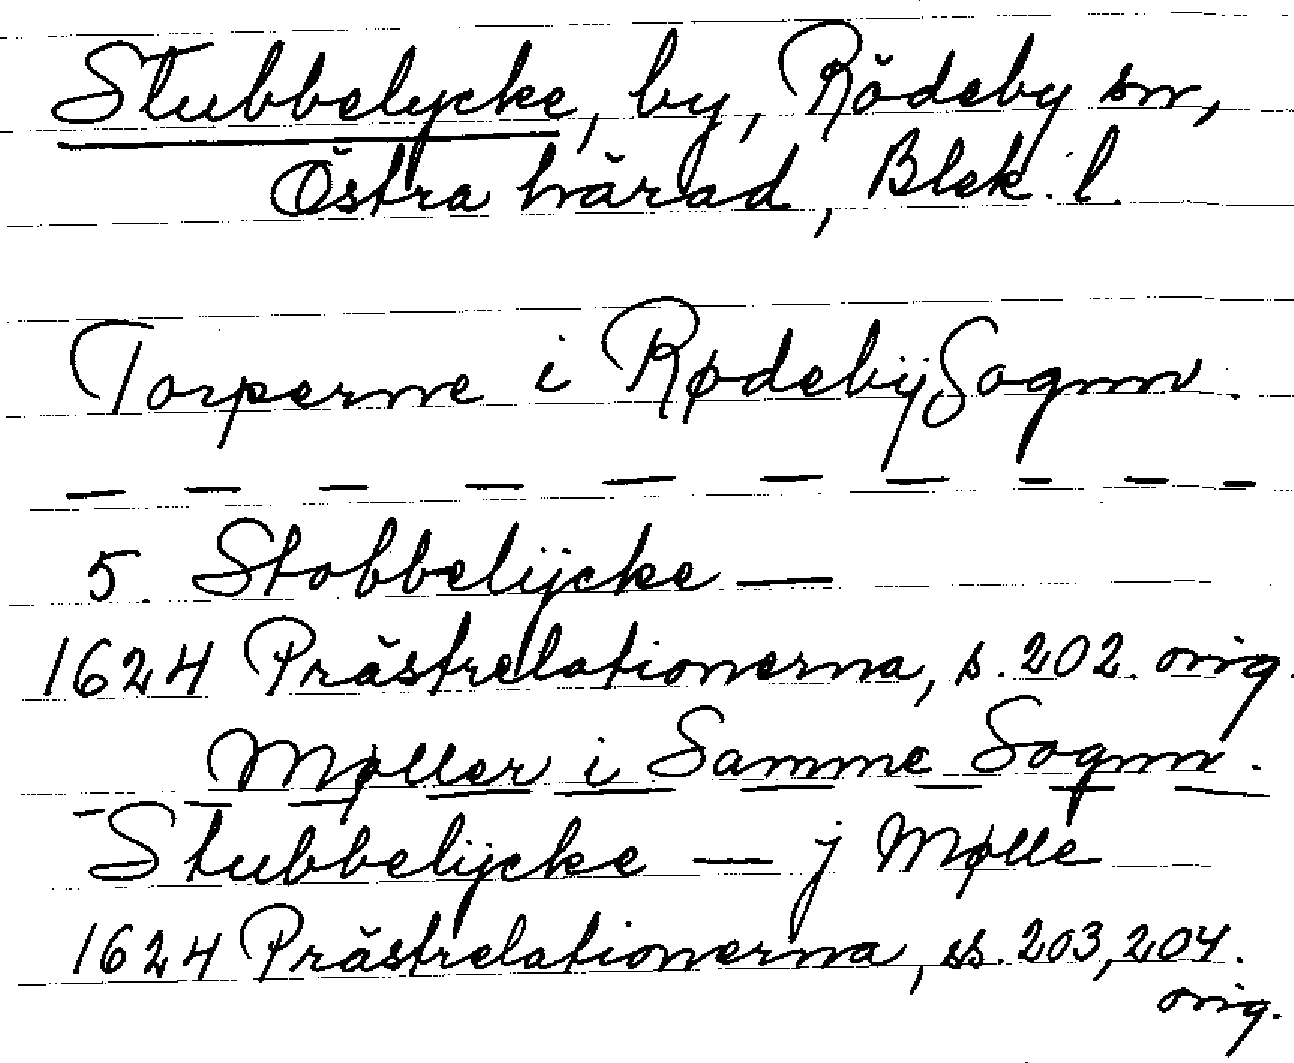 Stubbelycke, by, Rödeby sn,
Östra härad, Blek. l.
Torperne i Rødebÿ Sognn.
— — — — — — — — — —
5. Stobbelÿcke —
1624 Prästrelationerna, s. 202. orig.
Møller i Samme Sognn.
— — — — — — — — —
Stubbelÿcke — j Mølle
1624 Prästrelationerna, ss. 203, 204.
orig.